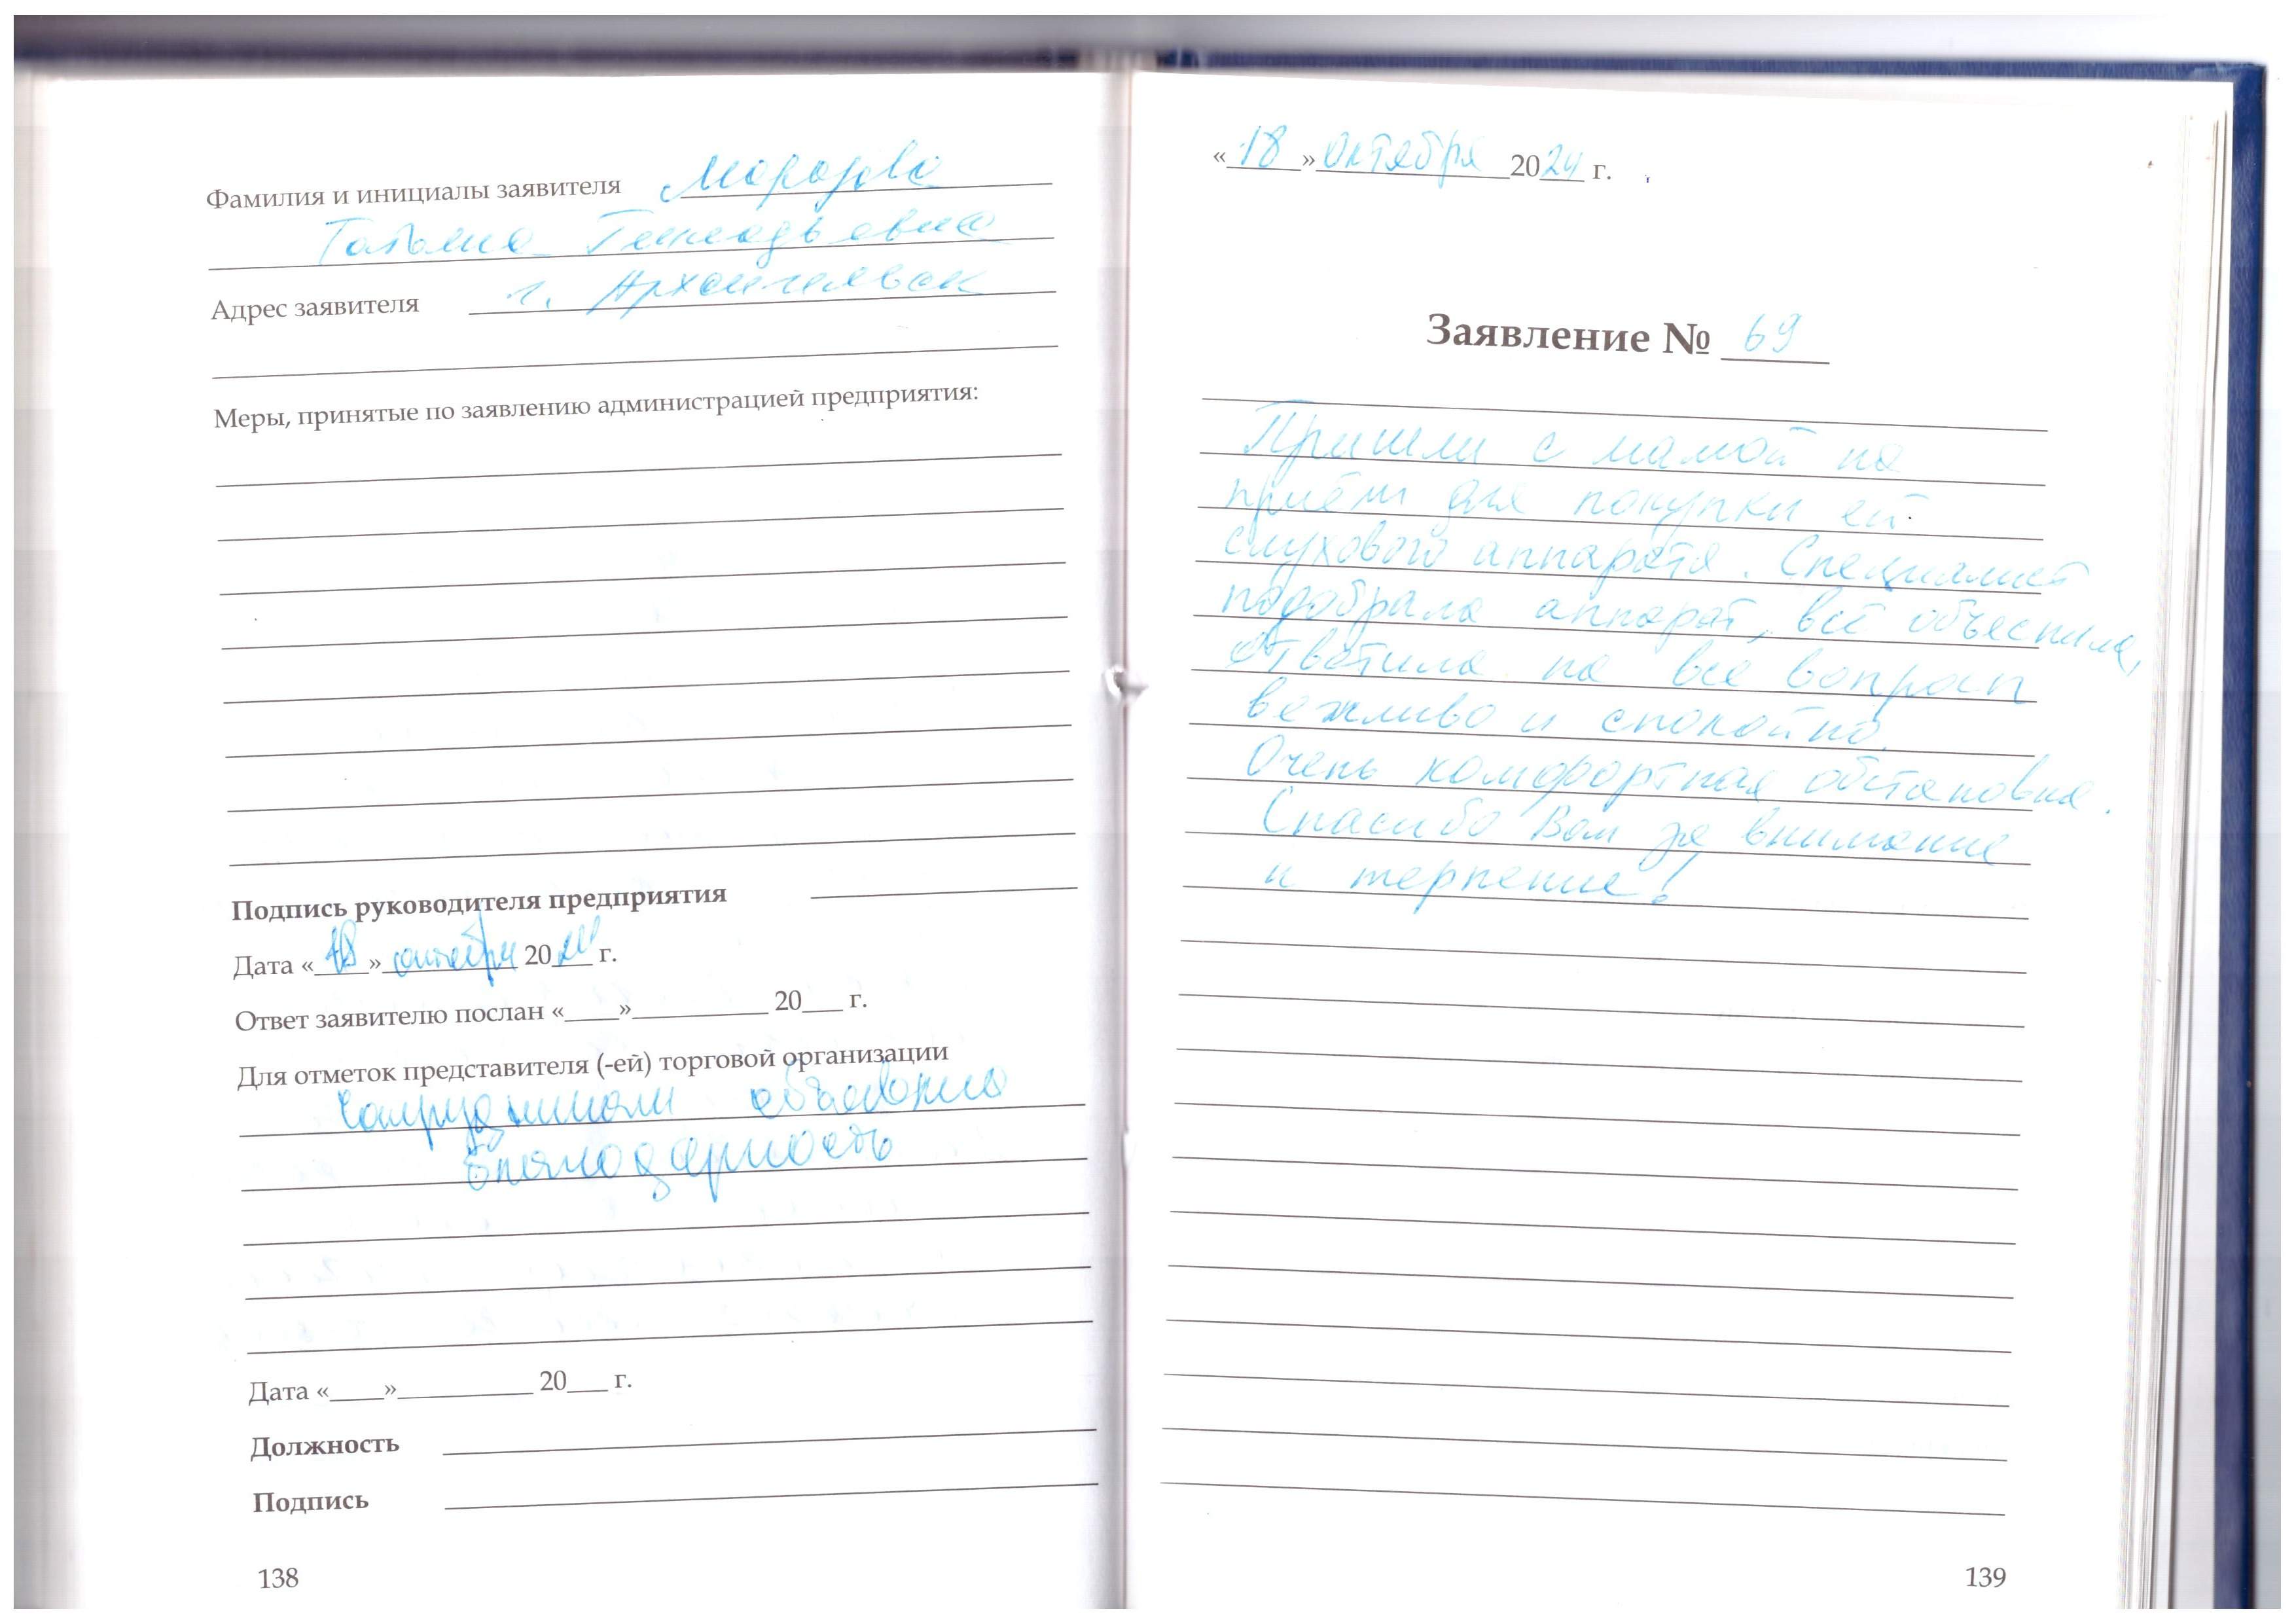 Фамилия и инициалы заявителя Морозова
Татьяна Геннадьевна
Адрес заявителя г. Архангельск
Меры, принятые по заявлению администрацией предприятия:
Подпись руководителя предприятия
Дата «18» октября 2024 г.
Ответ заявителю послан «____»__________ 20___ г.
Для отметок представителя (-ей) торговой организации
объявлена
благодарность
Дата «____»__________ 20___ г.
Должность
Подпись
138
«18» октября 2024 г.
Заявление № 69
Пришли с мамой на
приём для покупки ей
слухового аппарата. Специалист
подобрала аппарат, всё объяснила,
ответила на все вопросы
вежливо и спокойно.
Очень комфортная обстановка.
Спасибо Вам за внимание
и терпение!
139